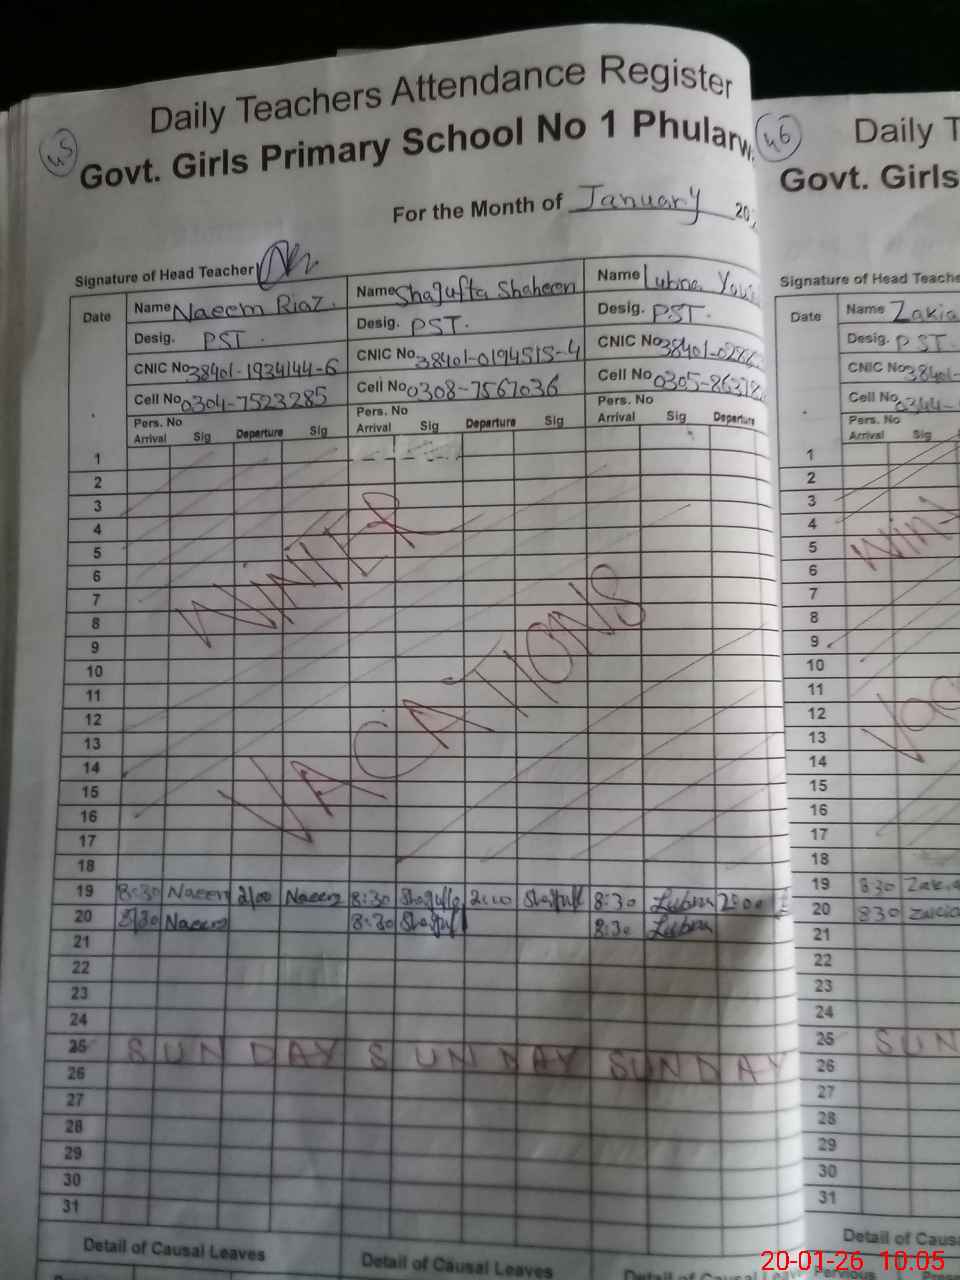 45
Daily Teachers Attendance Register
Govt. Girls Primary School No 1 Phularw
For the Month of January 20
Signature of Head Teacher
Date
Name Naeem Riaz.
Desig. PST.
CNIC No 38401-1934144-6
Cell No 0304-7523285
Pers. No
Arrival Sig Departure Sig
Name Shagufta Shaheen
Desig. PST.
CNIC No 38401-0194515-4
Cell No 0308-7567036
Pers. No
Arrival Sig Departure Sig
Name Lubna
Desig. PST.
CNIC No 38401-
Cell No 0305-
Pers. No
Arrival Sig Departure
1
2
3
4
5
6
7
8
9
10
11
12
13
14
15
16
17
18
WINTER
VACATIONS
19 8:30 Naeem 2/00 Naeem 8:30 Shagufta 2:00 8:30 Lubna 2:00
20 8/30 Naeem 8:30 8:30 Lubna
21
22
23
24
25 SUNDAY SUNDAY SUNDAY
26
27
28
29
30
31
Detail of Causal Leaves
Detail of Causal Leaves
46
Daily T
Govt. Girls
Signature of Head Teache
Date
Name Zakia
Desig. PST.
CNIC No 38401-
Cell No 0344-
Pers. No
Arrival Sig
1
2
3
4
5
6
7
8
9
10
11
12
13
14
15
16
17
18
Wint
Vac
19 830 Zakia
20 830 Zakia
21
22
23
24
25 SUN
26
27
28
29
30
31
Detail of Caus
20-01-26 10:05